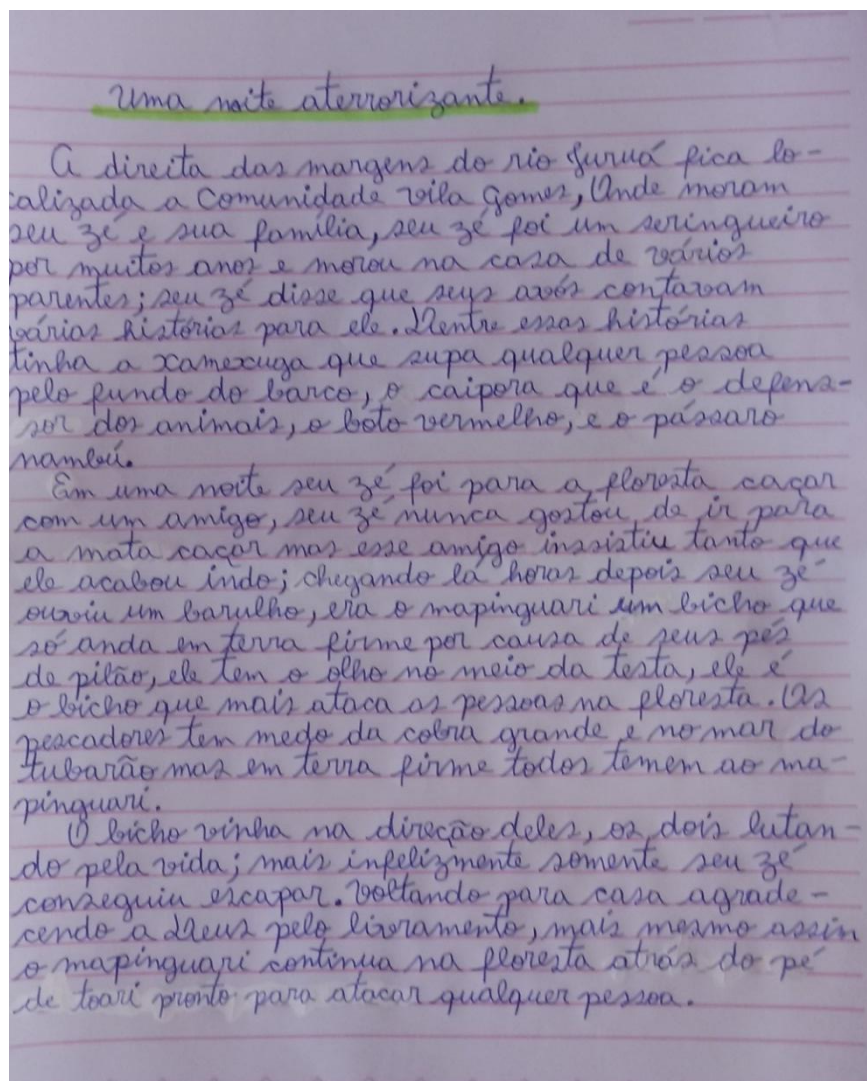 Uma noite aterrorizante.
A direita das margens do rio Juruá fica lo-
calizada a Comunidade vila Gomes, Onde moram
seu zé e sua família, seu zé foi um seringueiro
por muitos anos e morou na casa de vários
parentes; seu zé disse que seus avós contavam
várias histórias para ele. Dentre essas histórias
tinha a xamexuga que supa qualquer pessoa
pelo fundo do barco, o caipora que é o defens-
sor dos animais, o boto vermelho, e o pássaro
nambú.
Em uma noite seu zé foi para a floresta caçar
com um amigo, seu zé nunca gostou de ir para
a mata caçar mas esse amigo inssistiu tanto que
ele acabou indo; chegando lá horas depois seu zé
ouviu um barulho, era o mapinguari um bicho que
só anda em terra firme por causa de seus pés
de pilão, ele tem o olho no meio da testa, ele é
o bicho que mais ataca as pessoas na floresta. Os
pescadores tem medo da cobra grande e no mar do
tubarão mas em terra firme todos temem ao ma-
pinguari.
O bicho vinha na direção deles, os dois lutan-
do pela vida; mais infelizmente somente seu zé
conseguiu escapar. Voltando para casa agrade-
cendo a Deus pelo livramento, mais mesmo assin
o mapinguari continua na floresta atrás do pé
de toari pronto para atacar qualquer pessoa.